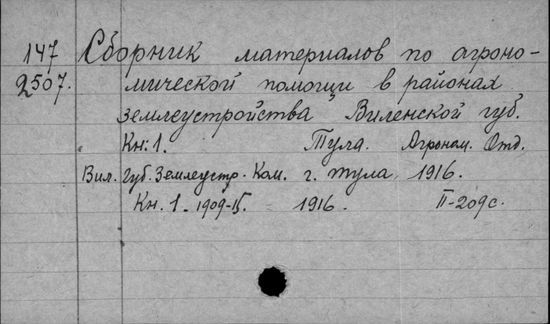 147 Сборник материалов по агроно-
2507. мической помощи в районах
землеустройства Виленской губ.
Кн: 1. Тула. Агроном. Отд.
Вил. Губ. Землеустр. Ком. г. Тула, 1916.
Кн. 1 - 1909-15. 1916. II-209с.